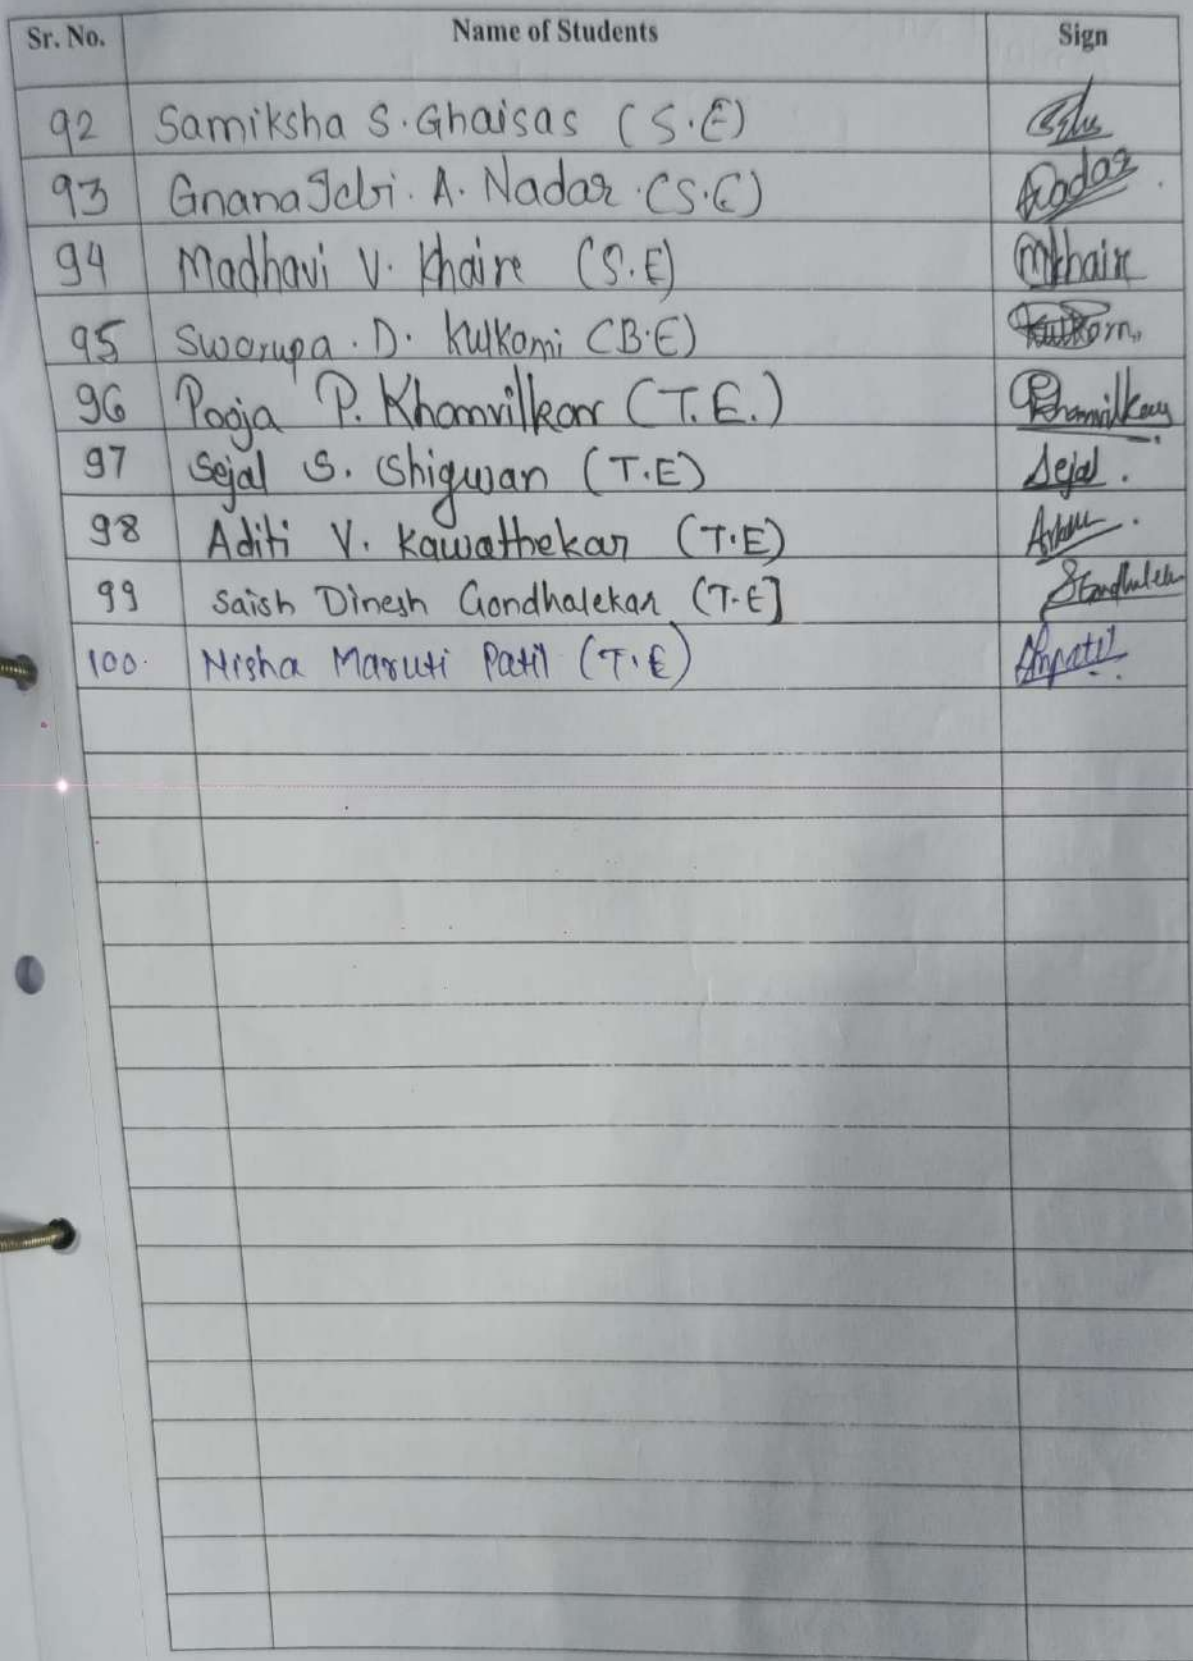 Sr. No. Name of Students Sign
92 Samiksha S. Ghaisas (S.E)
93 A. Nadar (S.E) Nadar
94 Madhavi V. Khaire (S.E) MKhaire
95 Swarupa. D. Kulkarni (B.E)
96 Pooja P. Khamvilkar (T.E.) PKhamvilkar
97 Sejal S. Shigwan (T.E) Sejal.
98 Aditi V. Kawathekar (T.E)
99 Saish Dinesh Gondhalekar (T.E]
100. Nisha Maruti Patil (T.E)